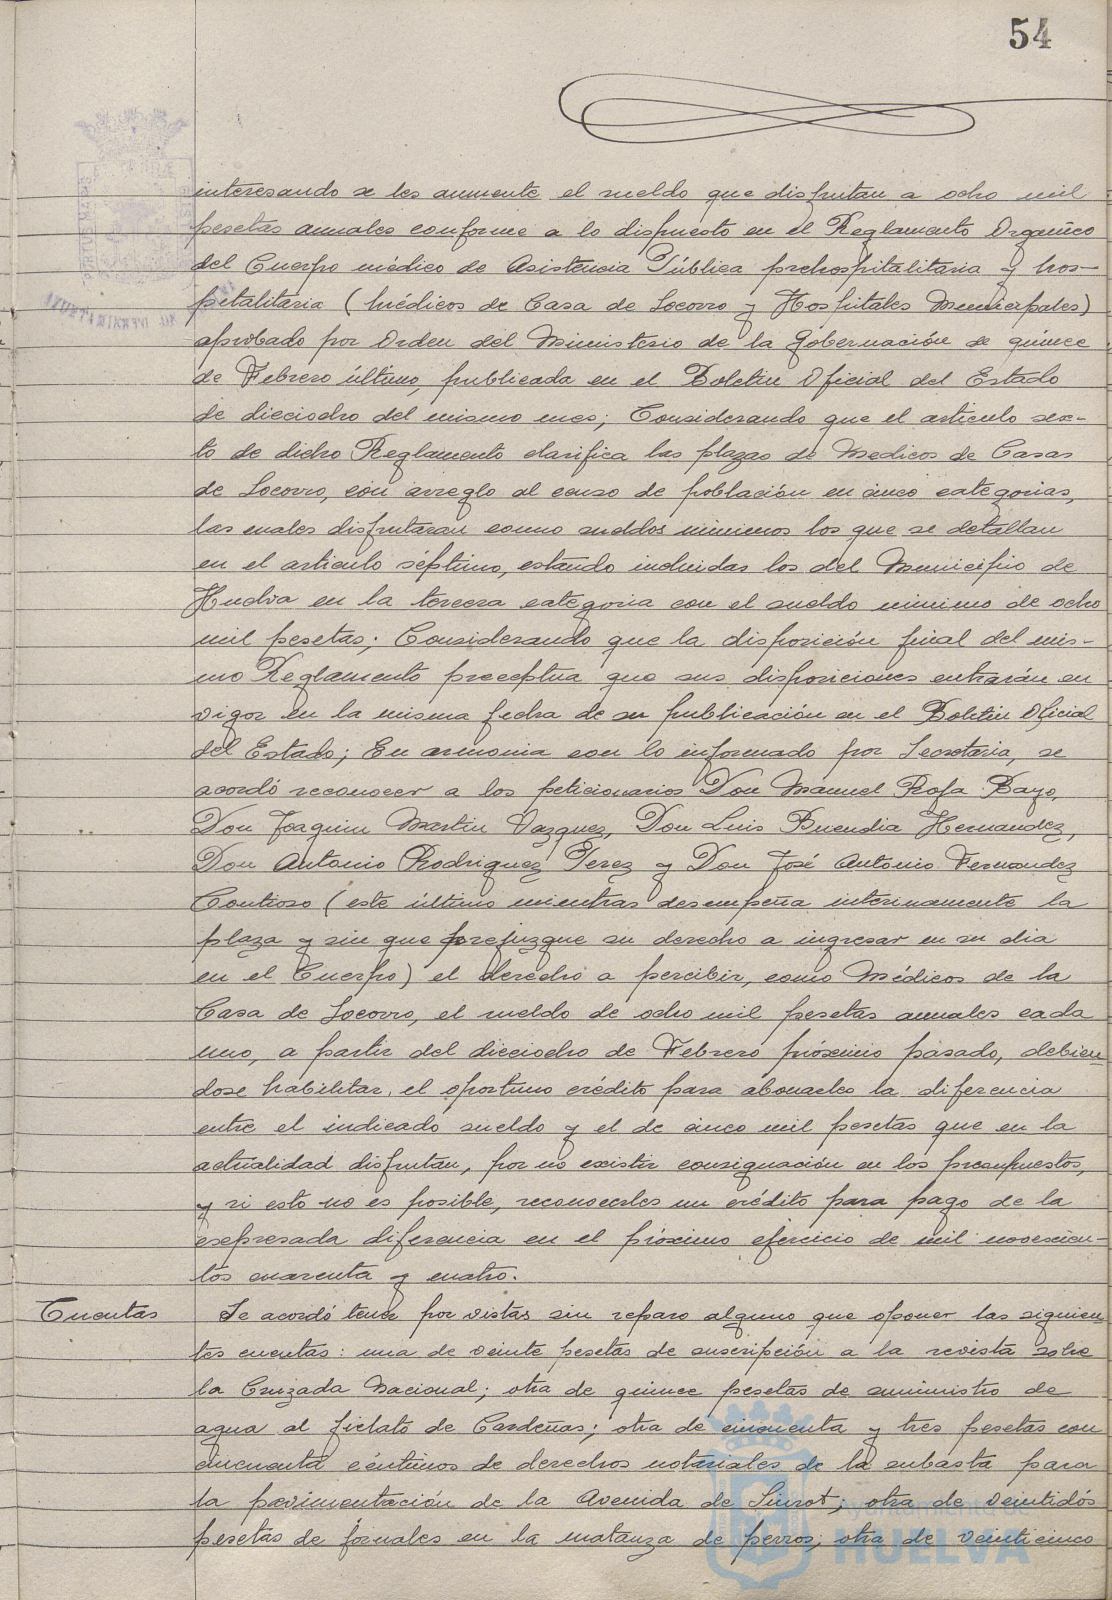 54
interesando se les aumente el sueldo que disfrutan a ocho mil
pesetas anuales conforme a lo dispuesto en el Reglamento Organico
del Cuerpo médico de Asistencia Pública prehospitalitaria y hos-
pitalitaria (Médicos de Casa de Socorro y Hospitales Municipales)
aprobado por Orden del Ministerio de la Gobernación de quince
de Febrero último, publicada en el Boletin Oficial del Estado
de dieciocho del mismo mes; Considerando que el articulo sex-
to de dicho Reglamento clasifica las plazas de Medicos de Casas
de Socorro, con arreglo al censo de población en cinco categorias,
las cuales disfrutaran como sueldos minimos los que se detallan
en el articulo séptimo, estando incluidas los del Municipio de
Huelva en la tercera categoria con el sueldo minimo de ocho
mil pesetas; Considerando que la disposición final del mis-
mo Reglamento preceptua que sus disposiciones entrarán en
vigor en la misma fecha de su publicación en el Boletin Oficial
del Estado; En armonia con lo informado por Secretaria, se
acordó reconocer a los peticionarios Don Manuel Rofa Bayo,
Don Joaquin Martin Vazquez, Don Luis Buendia Hernandez,
Don Antonio Rodriguez Perez y Don José Antonio Fernandez
Contioso (este último mientras desempeña interinamente la
plaza y sin que prefuzgue su derecho a ingresar en su dia
en el Cuerpo) el derecho a percibir, como Médicos de la
Casa de Socorro, el sueldo de ocho mil pesetas anuales cada
uno, a partir del dieciocho de Febrero próximo pasado, debien-
dose habilitar el oportuno crédito para abonarles la diferencia
entre el indicado sueldo y el de cinco mil pesetas que en la
actualidad disfrutan, por no existir consignación en los presupuestos,
y si esto no es posible, reconocerles un crédito para pago de la
expresada diferencia en el próximo ejercicio de mil novecien-
tos cuarenta y cuatro.
Cuentas
Se acordó tener por vistas sin reparo alguno que oponer las siguien-
tes cuentas: una de veinte pesetas de suscripción a la revista sobre
la Cruzada Nacional; otra de quince pesetas de suministro de
agua al fielato de Cardeñas; otra de cincuenta y tres pesetas con
cincuenta céntimos de derechos notariales de la subasta para
la pavimentación de la Avenida de Siurot; otra de veintidós
pesetas de jornales en la matanza de perros; otra de veinticinco
Ayuntamiento de
HUELVA